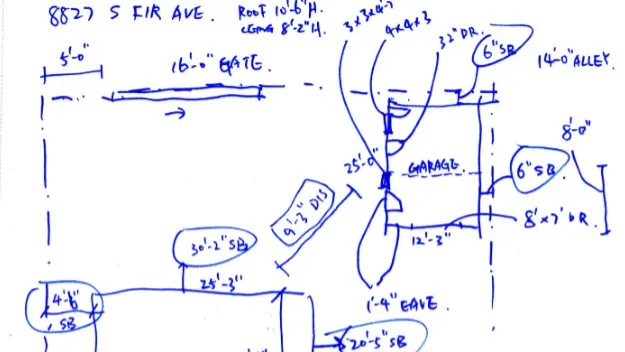 8827 S FIR AVE. ROOF 10'-6" H.
CEING 8'-2" H.
4x4x3
32" DR.
6" SB
14'-0" ALLEY.
5'-0"
16'-0" GATE.
8'-0"
25'-0"
GARAGE.
6" SB.
9'-3" DIS
8'x7' DR.
12'-3"
30'-2" SB
25'-3"
1'-4" EAVE
4'-6"
SB
20'-5" SB